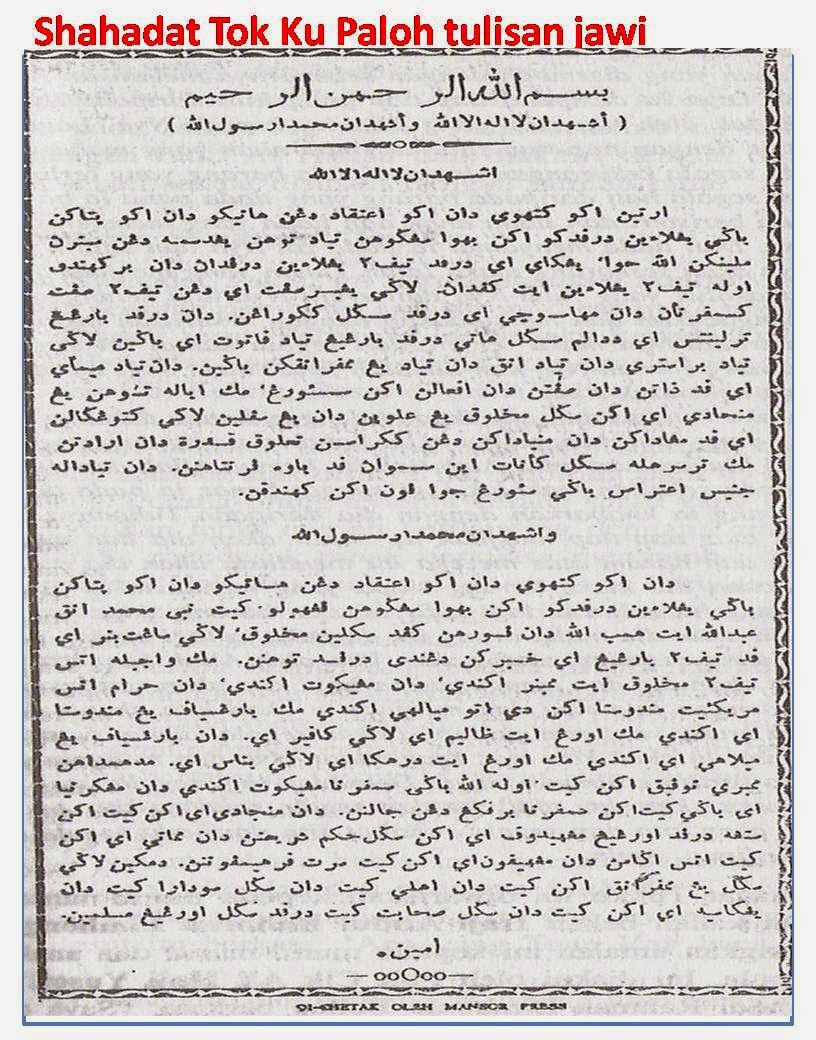 Shahadat Tok Ku Paloh tulisan jawi
بسم الله الرحمن الرحيم
( أشهدان لااله الاالله وأشهدان محمدارسول الله )
اشهدان لااله الاالله
ارتين اکو کتهوي دان اکو اعتقاد دڠن هاتيکو دان اکو پتاکن
باڬي يڠلاءين درفدکو اکن بهوا سڠڬوهن تياد توهن يڠدسمبه دڠن سبنرن
ملينکن الله جوا، يڠکاي اي درفد تيف٢ يڠلاءين درفدان دان برکهندو
اوله تيف٢ يڠلاءين ايت کفدان. لاڬي يڠبرصفت اي دڠن تيف٢ صفت
کسمفرنأن دان مهاسوچي اي درفد سڬل ککورڠن. دان درفد بارڠيڠ
ترلينتس اي ددالم سڬل هاتي درفد بارڠيڠ تياد فاتوت اي باڬين لاڬي
تياد براستري دان تياد انق دان تياد يڠ ممفرانقکن باڬين. دان تياد مپمأي
اي فد ذاتن دان صفتن دان افعالن اکن سسئورڠ، مك اياله توهن يڠ
منجادي اي اکن سڬل مخلوق يڠ علوين دان يڠ سفلين لاڬي کتوڠڬالن
اي فد مڠاداکن دان منياداکن دڠن ککراسن تعلوق قدرة دان ارادتن
مك ترسرهله سڬل کأنات اين سموان فد باوه فرنتاهن. دان تياداله
جنيس اعتراض باڬي سئورڠ جوا فون اکن کهندقن.
واشهدان محمدارسول الله
دان اکو کتهوي دان اکو اعتقاد دڠن هاتيکو دان اکو پتاکن
باڬي يڠلاءين درفدکو اکن بهوا سڠڬوهن ڤڠهولو کيت نبي محمد انق
عبدالله ايت همب الله دان فسورهن کفد سکلين مخلوق، لاڬي ساڠت بنر اي
فد تيف٢ بارڠيڠ اي خبرکن دڠندي درفد توهنن. مك واجبله اتس
تيف٢ مخلوق ايت ممبنر اکندي، دان مڠيکوت اکندي، دان حرام اتس
مريکئيت مندوستا اکن دي اتو مپالهي اکندي مك بارڠسياف يڠ مندوستا
اي اکندي مك اورڠ ايت ظاليم اي لاڬي کافير اي. دان بارڠسياف يڠ
مپلاهي اي اکندي مك اورڠ ايت درهکا اي لاڬي بناس اي. مدهمداهن
ممبري توفيق اکن کيت اوله الله باڬي سمفرنا مڠيکوت اکندي دان مڠکرنيا
اي باڬي کيت اکن سمفرنا برفڬڠ دڠن جالنن. دان منجادي اي اکن کيت اکن
ستڠه درفد اورڠيڠ مڠهيدوف اي اکن سڬل حکم شريعتن دان مماتي اي اکن
کيت اتس اڬامن دان مڠهمفون اي اکن کيت سرت فرهيمفونن. دمکين لاڬي
سڬل يڠ ممفرانق اکن کيت دان اهلي کيت دان سڬل سودارا کيت دان
يڠکاسيه اي اکن کيت دان سڬل صحابت کيت درفد سڬل اورڠيڠ مسلمين.
امين.
ooOoo
DI-CHETAK OLEH MANSOR PRESS